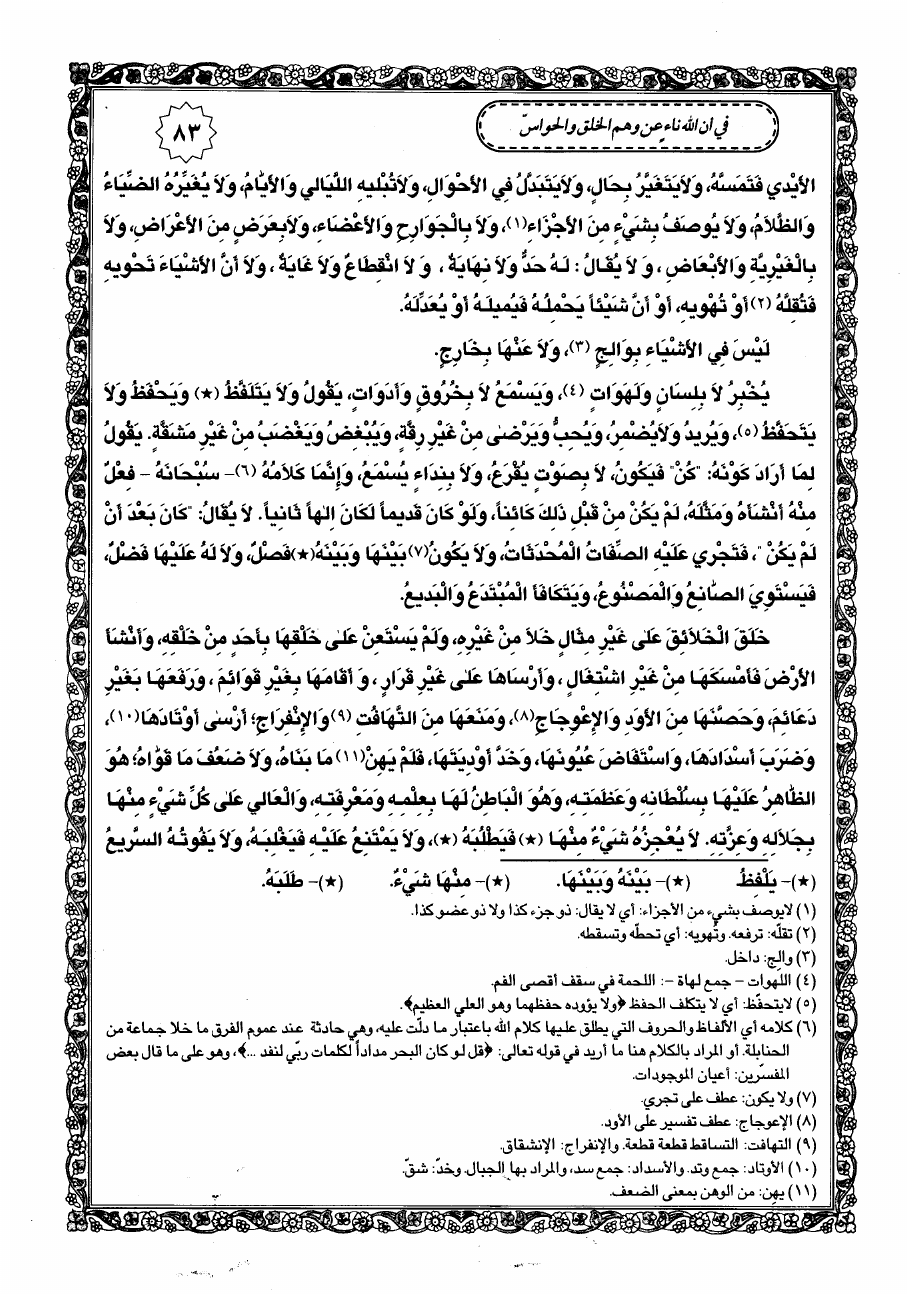 في ان الله ناءٍ عن وهم الخلق والحواسّ
٨٣
الأَيْدي فَتَمَسَّهُ، وَلاَيَتَغَيَّرُ بِحَالٍ، وَلاَيَتَبَدَّلُ فِي الأَحْوَالِ، وَلاَتُبْليهِ اللَّيَالي وَالأَيَّامُ، وَلاَ يُغَيِّرُهُ الضِّيَاءُ
وَالظَّلاَمُ، وَلاَ يُوصَفُ بِشَيْءٍ مِنَ الأَجْزَاءِ (١)، وَلاَ بِالْجَوَارِحِ وَالأَعْضَاءِ، وَلاَبِعَرَضٍ مِنَ الأَعْرَاضِ، وَلاَ
بِالْغَيْرِيَّةِ وَالأَبْعَاضِ، وَ لاَ يُقَالُ: لَهُ حَدٌّ وَلاَ نِهَايَةٌ، وَ لاَ انْقِطَاعٌ وَلاَ غَايَةٌ، وَلاَ أَنَّ الأَشْيَاءَ تَحْويهِ
فَتُقِلَّهُ (٢) أَوْ تُهْوِيهِ، أَوْ أَنَّ شَيْئاً يَحْمِلُهُ فَيُمِيلَهُ أَوْ يُعَدِّلَهُ.
لَيْسَ فِي الأَشْيَاءِ بِوَالِجٍ (٣)، وَلاَ عَنْهَا بِخَارِجٍ.
يُخْبِرُ لاَ بِلِسَانٍ وَلَهَوَاتٍ (٤)، وَيَسْمَعُ لاَ بِخُرُوقٍ وَأَدَوَاتٍ، يَقُولُ وَلاَ يَتَلَفَّظُ (★) وَيَحْفَظُ وَلاَ
يَتَحَفَّظُ (٥)، وَيُريدُ وَلاَيُضْمِرُ، وَيُحِبُّ وَيَرْضىٰ مِنْ غَيْرِ رِقَّةٍ، وَيُبْغِضُ وَيَغْضَبُ مِنْ غَيْرِ مَشَقَّةٍ. يَقُولُ
لِمَا أَرَادَ كَوْنَهُ: "كُنْ" فَيَكُونُ، لاَ بِصَوْتٍ يُقْرَعُ، وَلاَ بِنِدَاءٍ يُسْمَعُ، وَإِنَّمَا كَلاَمُهُ (٦)– سُبْحَانَهُ – فِعْلٌ
مِنْهُ أَنْشَأَهُ وَمَثَّلَهُ، لَمْ يَكُنْ مِنْ قَبْلِ ذٰلِكَ كَائِناً، وَلَوْ كَانَ قَديماً لَكَانَ إِلٰهاً ثَانِياً. لاَ يُقَالُ: "كَانَ بَعْدَ أَنْ
لَمْ يَكُنْ"، فَتَجْرِيَ عَلَيْهِ الصِّفَاتُ الْمُحْدَثَاتُ، وَلاَ يَكُونُ (٧) بَيْنَهَا وَبَيْنَهُ (★) فَصْلٌ، وَلاَ لَهُ عَلَيْهَا فَضْلٌ،
فَيَسْتَوِيَ الصَّانِعُ وَالْمَصْنُوعُ، وَيَتَكَافَأَ الْمُبْتَدَعُ وَالْبَديعُ.
خَلَقَ الْخَلاَئِقَ عَلىٰ غَيْرِ مِثَالٍ خَلاَ مِنْ غَيْرِهِ، وَلَمْ يَسْتَعِنْ عَلىٰ خَلْقِهَا بِأَحَدٍ مِنْ خَلْقِهِ، وَأَنْشَأَ
الأَرْضَ فَأَمْسَكَهَا مِنْ غَيْرِ اشْتِغَالٍ، وَأَرْسَاهَا عَلىٰ غَيْرِ قَرَارٍ، وَ أَقَامَهَا بِغَيْرِ قَوَائِمَ، وَرَفَعَهَا بِغَيْرِ
دَعَائِمَ، وَحَصَّنَهَا مِنَ الأَوَدِ وَالإِعْوِجَاجِ (٨)، وَمَنَعَهَا مِنَ التَّهَافُتِ (٩) وَالإِنْفِرَاجِ؛ أَرْسىٰ أَوْتَادَهَا (١٠)،
وَضَرَبَ أَسْدَادَهَا، وَاسْتَفَاضَ عُيُونَهَا، وَخَدَّ أَوْدِيَتَهَا، فَلَمْ يَهِنْ (١١) مَا بَنَاهُ، وَلاَ ضَعُفَ مَا قَوَّاهُ؛ هُوَ
الظَّاهِرُ عَلَيْهَا بِسُلْطَانِهِ وَعَظَمَتِهِ، وَهُوَ الْبَاطِنُ لَهَا بِعِلْمِهِ وَمَعْرِفَتِهِ، وَالْعَالي عَلىٰ كُلِّ شَيْءٍ مِنْهَا
بِجَلاَلِهِ وَعِزَّتِهِ. لاَ يُعْجِزُهُ شَيْءٌ مِنْهَا (★) فَيَطْلُبَهُ (★)، وَلاَ يَمْتَنِعُ عَلَيْهِ فَيَغْلِبَهُ، وَلاَ يَفُوتُهُ السَّريعُ
(★)– يَلْفِظُ (★)– بَيْنَهُ وَبَيْنَهَا. (★)– مِنْهَا شَيْءٌ. (★)– طَلَبَهُ.
(١) لايوصف بشيء من الأجزاء: أي لا يقال: ذو جزء كذا ولا ذو عضو كذا.
(٢) تقلّه: ترفعه. وتُهويه: أي تحطّه وتسقطه.
(٣) والج: داخل.
(٤) اللهوات – جمع لهاة –: اللحمة في سقف أقصى الفم.
(٥) لايتحفّظ: أي لا يتكلف الحفظ ﴿ولا يؤوده حفظهما وهو العلي العظيم﴾.
(٦) كلامه أي الألفاظ والحروف التي يطلق عليها كلام الله باعتبار ما دلّت عليه، وهي حادثة عند عموم الفرق ما خلا جماعة من
الحنابلة. أو المراد بالكلام هنا ما أريد في قوله تعالى: ﴿قل لو كان البحر مداداً لكلمات ربّي لنفد ...﴾، وهو على ما قال بعض
المفسّرين: أعيان الموجودات.
(٧) ولا يكون: عطف على تجري.
(٨) الإعوجاج: عطف تفسير على الأود.
(٩) التهافت: التساقط قطعة قطعة. والإنفراج: الإنشقاق.
(١٠) الأوتاد: جمع وتد. والأسداد: جمع سد، والمراد بها الجبال. وخدّ: شقّ.
(١١) يهن: من الوهن بمعنى الضعف.